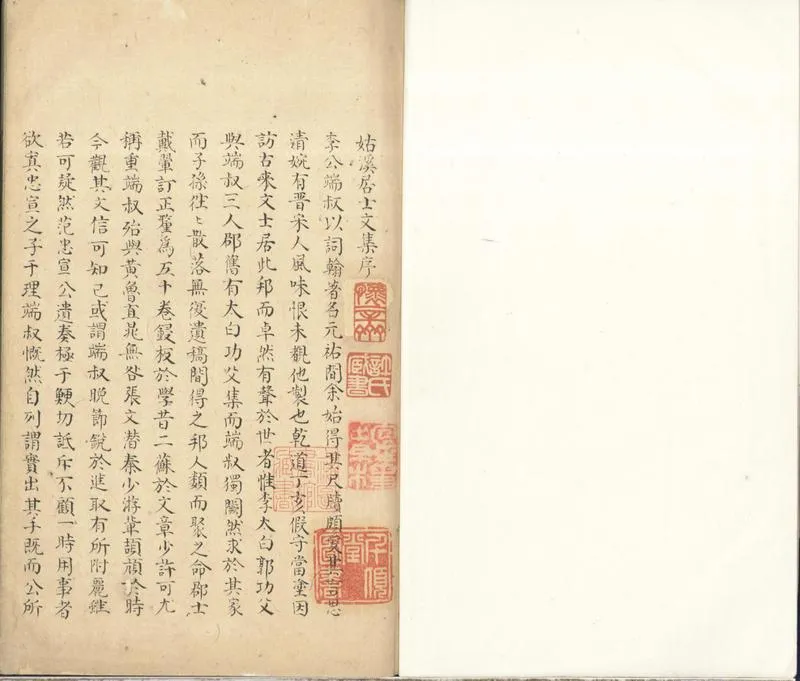 姑溪居士文集序
李公端叔以詞翰著名元祐間余始得其尺牘頗愛其意思
清婉有晋宋人風味恨未觀他製也乾道丁亥假守當塗因
訪古來文士居此邦而卓然有聲於世者惟李太白郭功父
與端叔三人郡舊有太白功父集而端叔獨闕然求於其家
而子孫徃〻散落無復遺稿間得之邦人類而聚之命郡士
戴𦦙訂正釐為五十卷鋟板於學昔二蘇於文章少許可尤
稱重端叔殆與黃魯直晁無咎張文潛秦少游輩頡頏於時
今觀其文信可知已或謂端叔晚節銳於進取有所附麗雖
若可疑然范忠宣公遺奏極于鯁切詆斥不顧一時用事者
欲寘忠宣之子于理端叔慨然自列謂實出其手既而公所
許氏
藏書